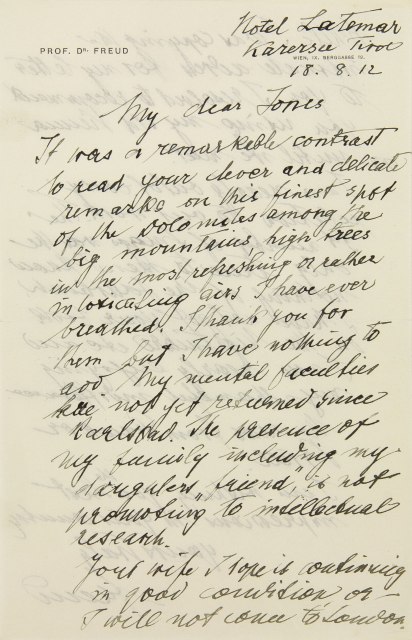 Hotel Latemar
Karersee Tirol
PROF. DR. FREUD
WIEN, IX. BERGGASSE 19.
18. 8. 12
My dear Jones
It was a remarkable contrast
to read your clever and delicate
remarks on this finest spot
of the Dolomites among the
big mountains, high trees
in the most refreshing or rather
intoxicating airs I have ever
breathed. I thank you for
them but I have nothing to
add. My mental faculties
have not yet returned since
Karlsbad. The presence of
my family including my
daughters "friend" is not
"promoting" to intellectual
research.
Your wife I hope is continuing
in good condition or
I will not come to London